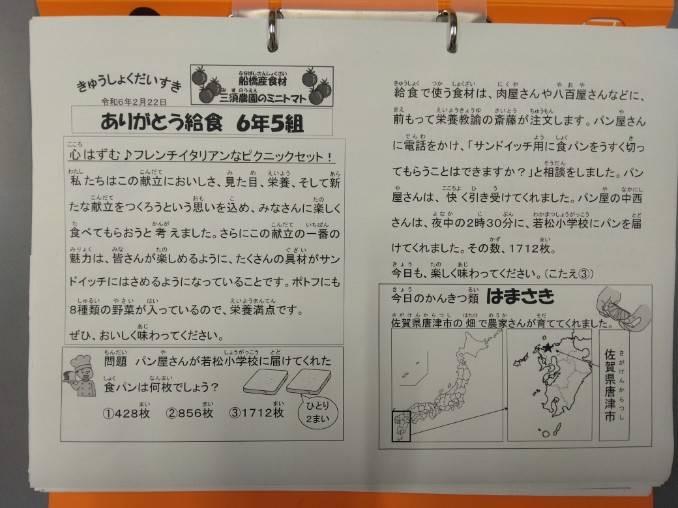 きゅうしょくだいすき
令和6年2月22日
船橋産食材
三須農園のミニトマト
ありがとう給食 6年5組
心はずむ♪フレンチイタリアンなピクニックセット!
私たちはこの献立においしさ、見た目、栄養、そして新
たな献立をつくろうという思いを込め、みなさんに楽しく
食べてもらおうと考えました。さらにこの献立の一番の
魅力は、皆さんが楽しめるように、たくさんの具材がサン
ドイッチにはさめるようになっていることです。ポトフにも
8種類の野菜が入っているので、栄養満点です。
ぜひ、おいしく味わってください。
問題 パン屋さんが若松小学校に届けてくれた
食パンは何枚でしょう?
①428枚 ②856枚 ③1712枚
ひとり
2まい
給食で使う食材は、肉屋さんや八百屋さんなどに、
前もって栄養教諭の斎藤が注文します。パン屋さん
に電話をかけ、「サンドイッチ用に食パンをうすく切っ
てもらうことはできますか?」と相談をしました。パン
屋さんは、快く引き受けてくれました。パン屋の中西
さんは、夜中の2時30分に、若松小学校にパンを届
けてくれました。その数、1712枚。
今日も、楽しく味わってください。(こたえ③)
今日のかんきつ類 はまさき
佐賀県唐津市の畑で農家さんが育ててくれました。
佐賀県唐津市